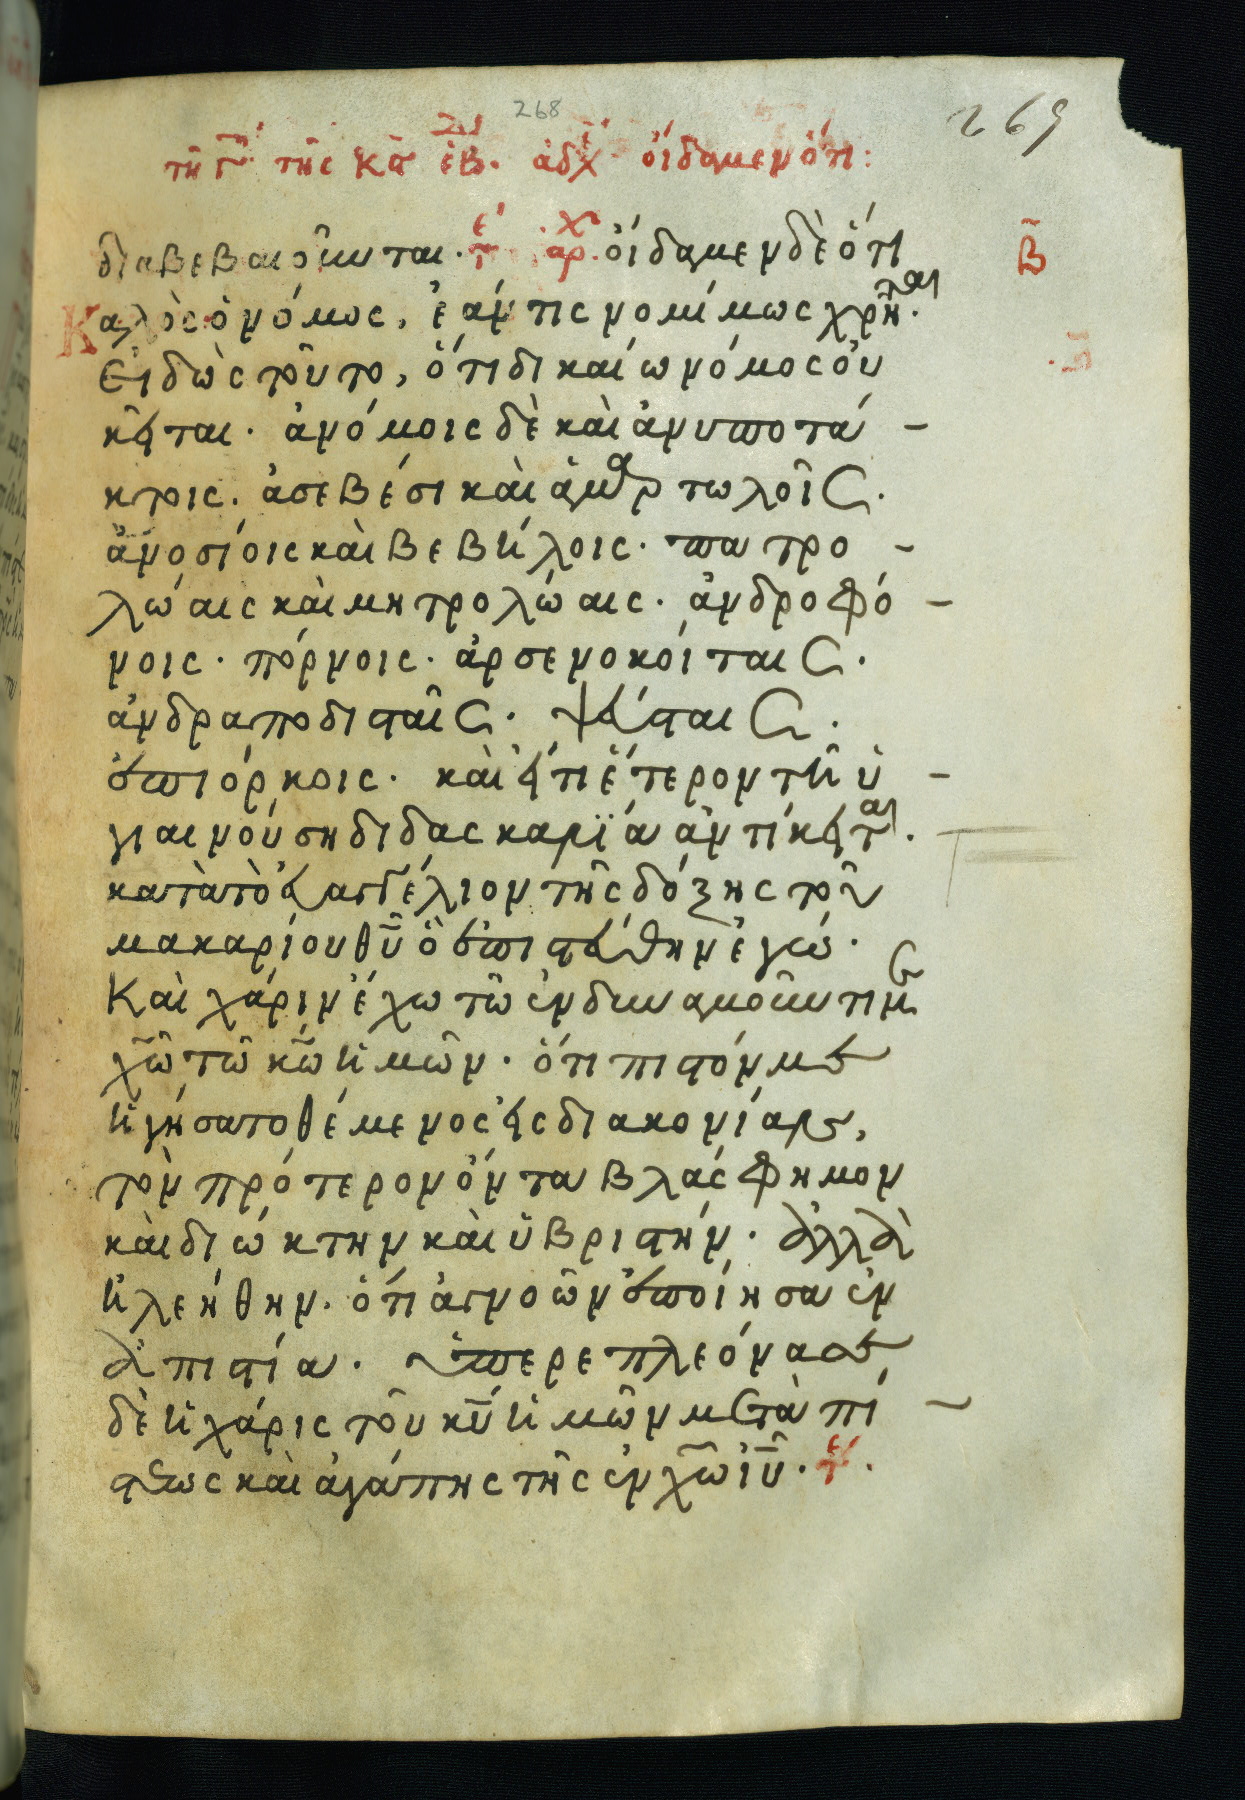 268
269
τῆ γ̄ τῆς κδ̄ ἑβδ. ἀδχ οἴδαμεν ὅτι:
διαβεβαιοῦνται· τε αρχ. οἴδαμεν δὲ ὅτι β̄
Καλὸς ὁ νόμος, ἐάν τις νομίμως χρῆται·
Εἰδὼς τοῦτο, ὅτι δικαίω νόμος οὐ
κεῖται· ἀνόμοις δὲ καὶ ἀνυποτά –
κτοις. ἀσεβέσι καὶ ἁμαρτωλοῖς.
ἀνοσίοις καὶ βεβήλοις· πατρο –
λώαις καὶ μητρολώαις· ἀνδροφό –
νοις· πόρνοις· ἀρσενοκοίταις·
ἀνδραποδισταῖς· ψεύσταις.
ἐπιόρκοις· καὶ εἴ τι ἕτερον τῆ ὑ –
γιαινούση διδασκαλϊα ἀντίκειται.
κατὰ τὸ εὐαγγέλιον τῆς δόξης τοῦ
μακαρίου θῦ ὃ ἐπιστεύθην ἐγώ·
Καὶ χάριν ἔχω τῶ ἐνδυναμοῦντι με
χῶ τῶ κῶ ἡμῶν· ὅτι πιστόν με
ἡγήσατο θέμενος εἰς διακονίαν,
τὸν πρότερον ὄντα βλάσφημον
καὶ διώκτην καὶ ὑβριστήν· ἀλλὰ
ἠλεήθην· ὅτι ἀγνοῶν ἐποίησα ἐν
ἀπιστία· ὑπερεπλεόνασε
δὲ ἡ χάρις τοῦ κῦ ἡμῶν μετὰ πί –
στεως καὶ ἀγάπης τῆς ἐν χῶ ἰῦ· τε.